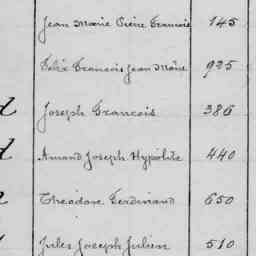 Jean Marie Pierre Francois 145
Felix Francois Jean Marie 925
Joseph Francois 386
Amand Joseph Hypolite 440
Theodore Ferdinand 650
Jules Joseph Julien 510